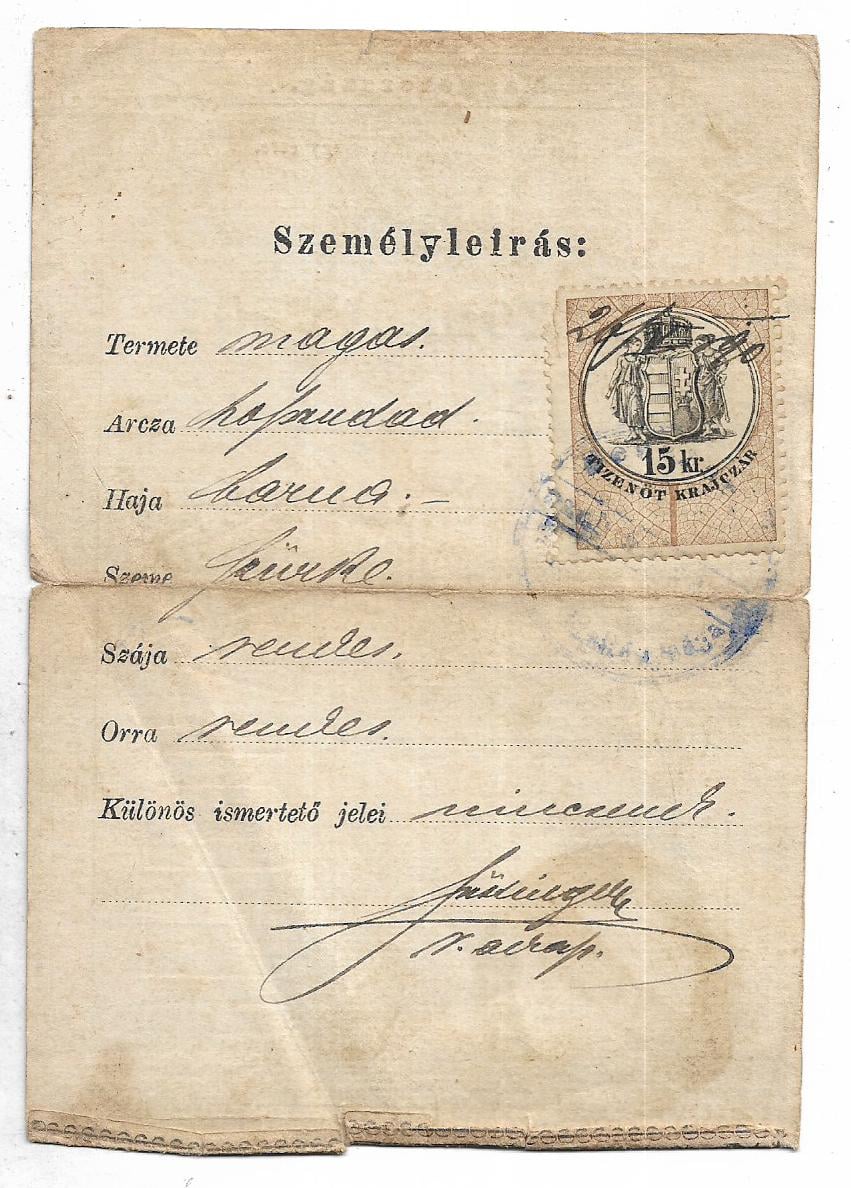 Személyleirás:
Termete magas.
Arcza hosszudad.
Haja barna. –
Szeme szürke.
Szája rendes.
Orra rendes.
Különös ismertető jelei nincsenek.
15 kr.
TIZENÖT KRAJCZÁR